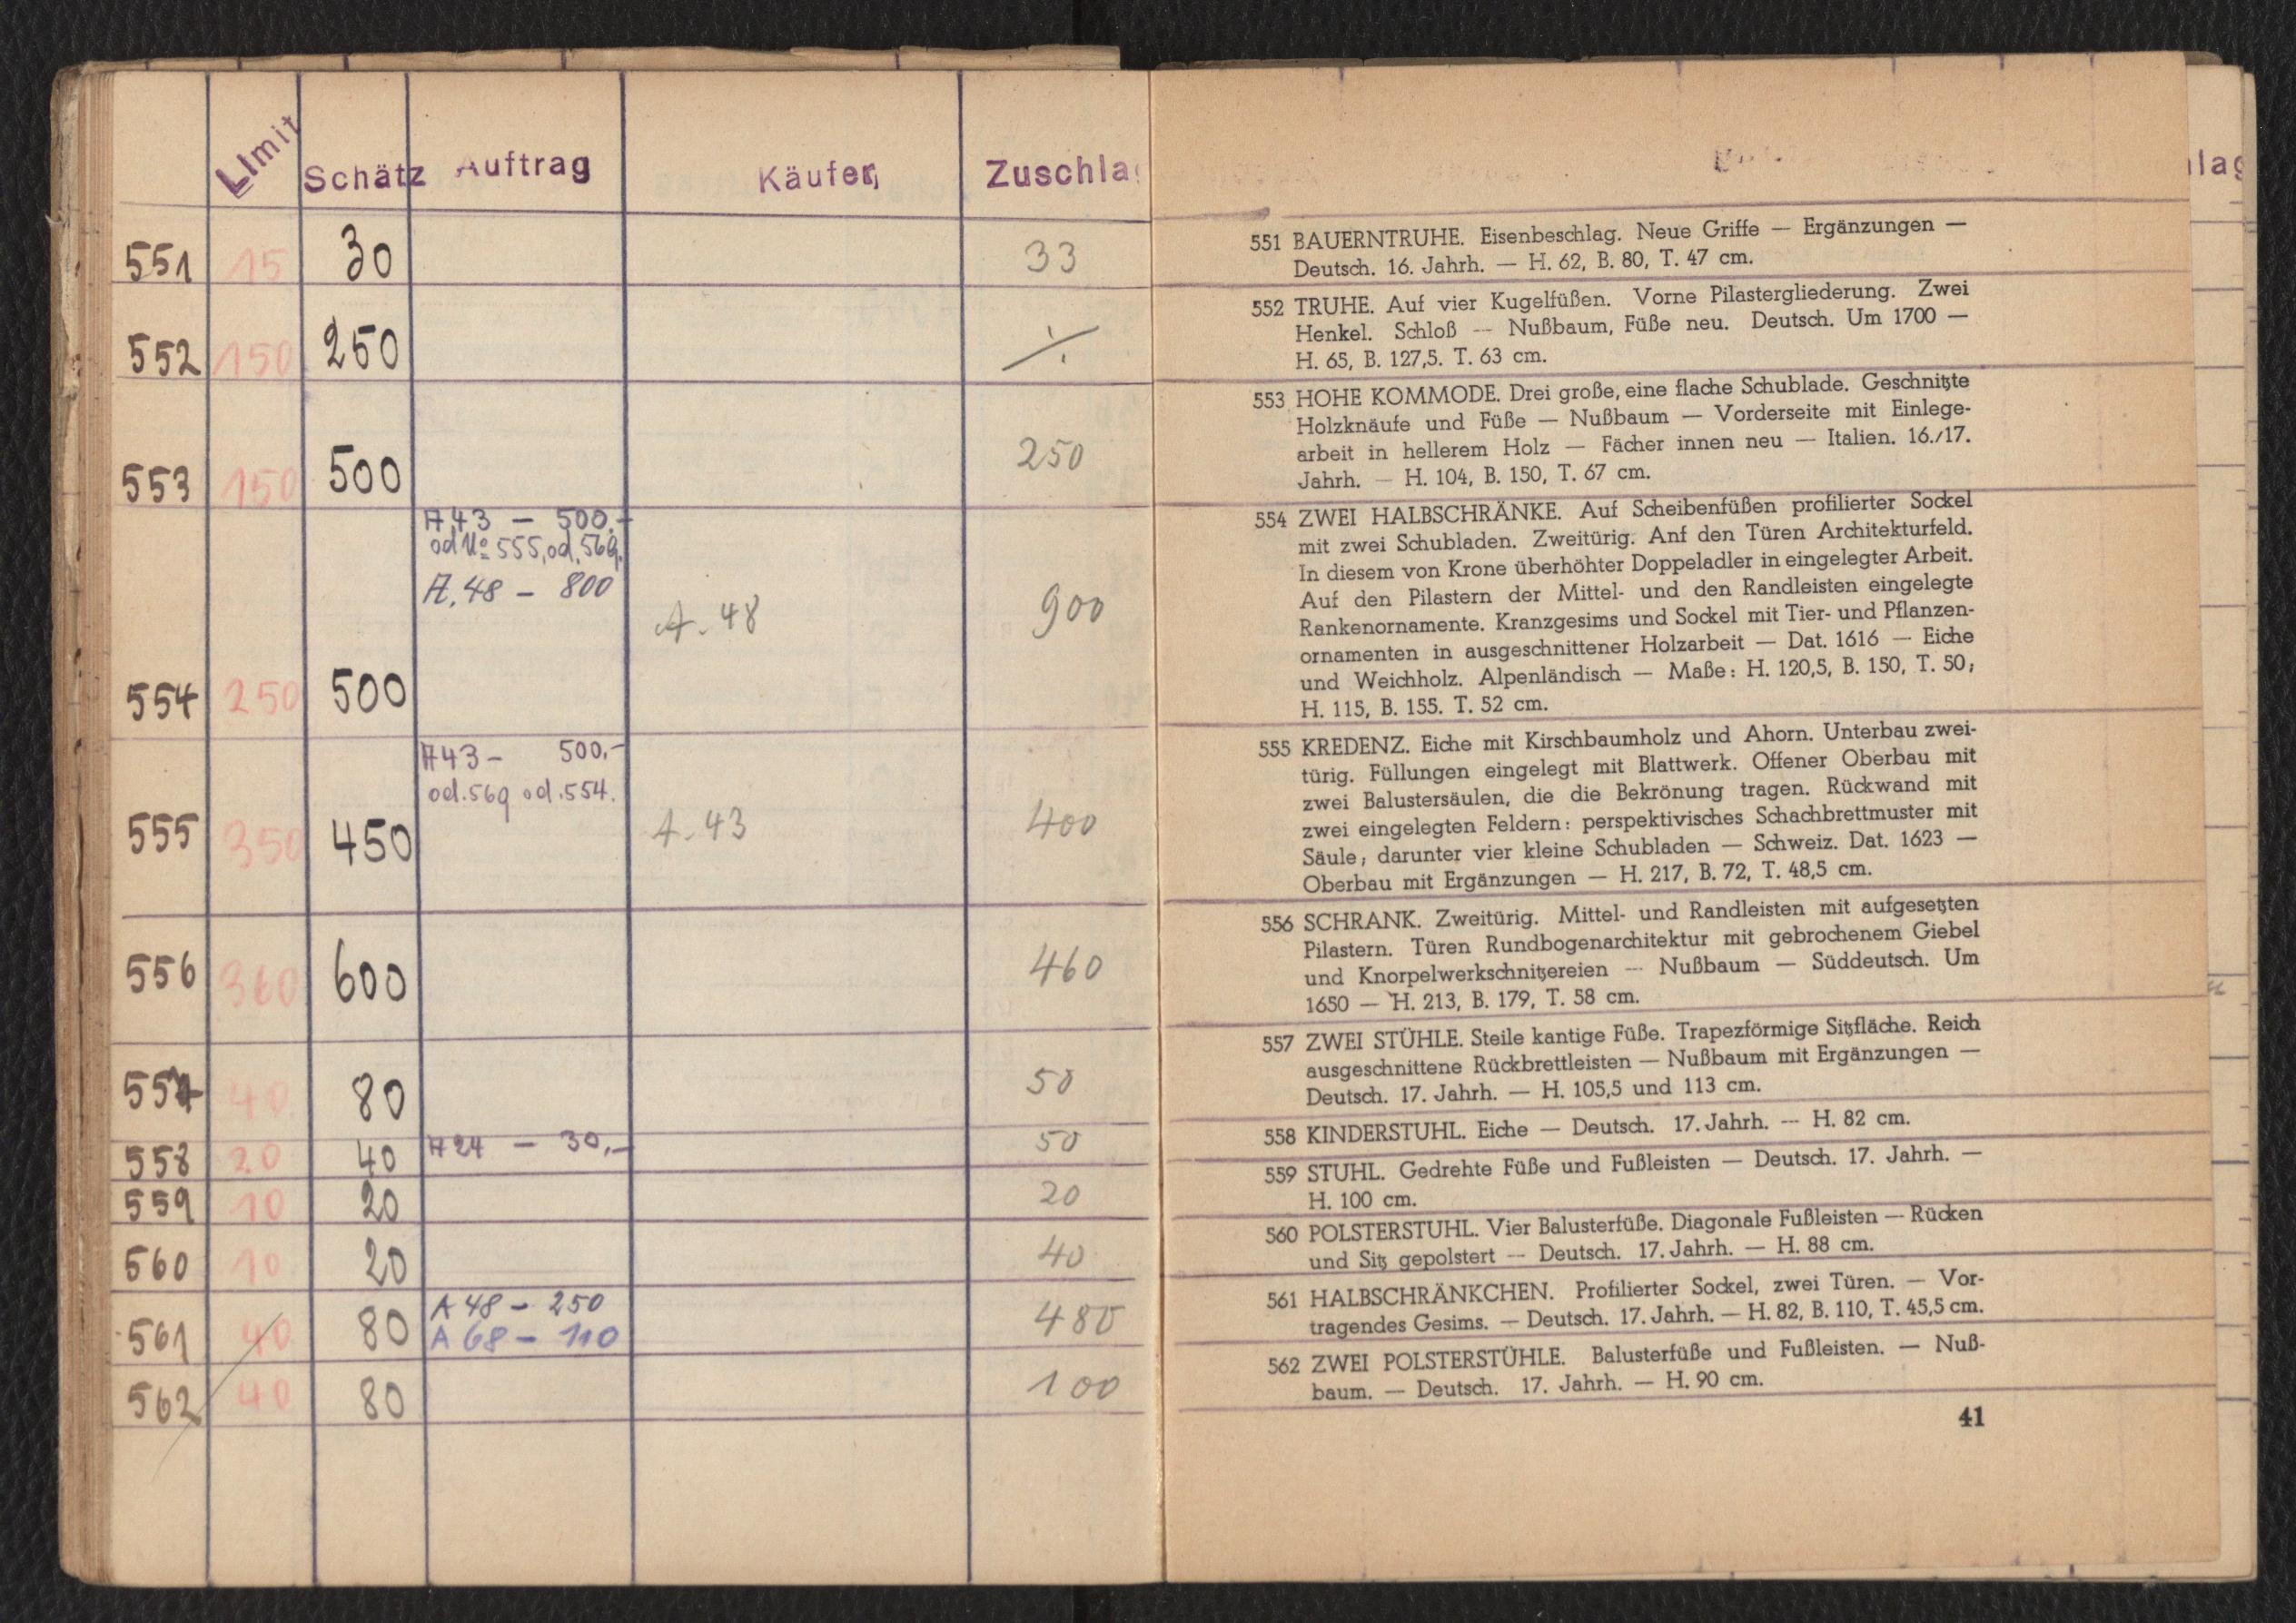 Limit Schätz Auftrag Käufer Zuschla
551 15 30 33
552 150 250 ·/.
553 150 500 250
A 43 – 500.–
od No 555, od. 569.
A. 48 – 800
554 250 500 A. 48 900
A 43 – 500,–
od. 569 od. 554.
555 350 450 A. 43 400
556 360 600 460
557 40 80 50
558 20 40 A 24 – 30,– 50
559 10 20 20
560 10 20 40
A 48 – 250
561 40 80 A 68 – 110 480
562 40 80 100
lag
551 BAUERNTRUHE. Eisenbeschlag. Neue Griffe — Ergänzungen —
Deutsch. 16. Jahrh. — H. 62, B. 80, T. 47 cm.
552 TRUHE. Auf vier Kugelfüßen. Vorne Pilastergliederung. Zwei
Henkel. Schloß — Nußbaum, Füße neu. Deutsch. Um 1700 —
H. 65, B. 127,5. T. 63 cm.
553 HOHE KOMMODE. Drei große, eine flache Schublade. Geschnitzte
Holzknäufe und Füße — Nußbaum — Vorderseite mit Einlege-
arbeit in hellerem Holz — Fächer innen neu — Italien. 16./17.
Jahrh. — H. 104, B. 150, T. 67 cm.
554 ZWEI HALBSCHRÄNKE. Auf Scheibenfüßen profilierter Sockel
mit zwei Schubladen. Zweitürig. Anf den Türen Architekturfeld.
In diesem von Krone überhöhter Doppeladler in eingelegter Arbeit.
Auf den Pilastern der Mittel- und den Randleisten eingelegte
Rankenornamente. Kranzgesims und Sockel mit Tier- und Pflanzen-
ornamenten in ausgeschnittener Holzarbeit — Dat. 1616 — Eiche
und Weichholz. Alpenländisch — Maße: H. 120,5, B. 150, T. 50;
H. 115, B. 155. T. 52 cm.
555 KREDENZ. Eiche mit Kirschbaumholz und Ahorn. Unterbau zwei-
türig. Füllungen eingelegt mit Blattwerk. Offener Oberbau mit
zwei Balustersäulen, die die Bekrönung tragen. Rückwand mit
zwei eingelegten Feldern: perspektivisches Schachbrettmuster mit
Säule; darunter vier kleine Schubladen — Schweiz. Dat. 1623 —
Oberbau mit Ergänzungen — H. 217, B. 72, T. 48,5 cm.
556 SCHRANK. Zweitürig. Mittel- und Randleisten mit aufgesetzten
Pilastern. Türen Rundbogenarchitektur mit gebrochenem Giebel
und Knorpelwerkschnitzereien — Nußbaum — Süddeutsch. Um
1650 — H. 213, B. 179, T. 58 cm.
557 ZWEI STÜHLE. Steile kantige Füße. Trapezförmige Sitzfläche. Reich
ausgeschnittene Rückbrettleisten — Nußbaum mit Ergänzungen —
Deutsch. 17. Jahrh. — H. 105,5 und 113 cm.
558 KINDERSTUHL. Eiche — Deutsch. 17. Jahrh. — H. 82 cm.
559 STUHL. Gedrehte Füße und Fußleisten — Deutsch. 17. Jahrh. —
H. 100 cm.
560 POLSTERSTUHL. Vier Balusterfüße. Diagonale Fußleisten — Rücken
und Sitz gepolstert — Deutsch. 17. Jahrh. — H. 88 cm.
561 HALBSCHRÄNKCHEN. Profilierter Sockel, zwei Türen. — Vor-
tragendes Gesims. — Deutsch. 17. Jahrh. — H. 82, B. 110, T. 45,5 cm.
562 ZWEI POLSTERSTÜHLE. Balusterfüße und Fußleisten. — Nuß-
baum. — Deutsch. 17. Jahrh. — H. 90 cm.
41